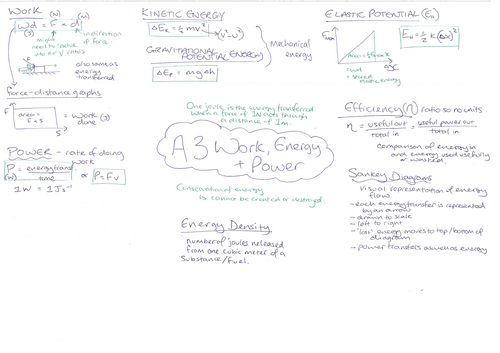 WORK
(N) (m)
Wd = F × d
(J)
in direction of force
might need to resolve into
also same as energy transferred
force-distance graphs
F
area = F × s
= work done (J)
s
POWER - rate of doing work
P = energy trans.
time
(W)
or P = Fv
1W = 1Js⁻¹
KINETIC ENERGY
ΔEk = ½mv²
v²-u²
GRAVITATIONAL POTENTIAL ENERGY
ΔEp = mgΔh
Mechanical energy
One joule is the energy transferred
when a force of 1N acts through
a distance of 1m.
A3 Work, Energy
+ Power
Conservation of energy
is cannot be created or destroyed
Energy Density
number of joules released
from one cubic meter of a
substance/fuel.
ELASTIC POTENTIAL (Eu)
Eu = ½ k (Δx)²
Δx
= stored elastic energy
Efficiency (η) ratio so no units
η = useful out = useful power out
total in total in
comparison of energy in
and energy used usefully
or wasted.
Sankey Diagrams
- visual representation of energy
flow
- each energy transfer is represented
by an arrow
- drawn to scale
- left to right
- 'lost' energy moves to top/bottom of
diagram
- power transfers as well as energy